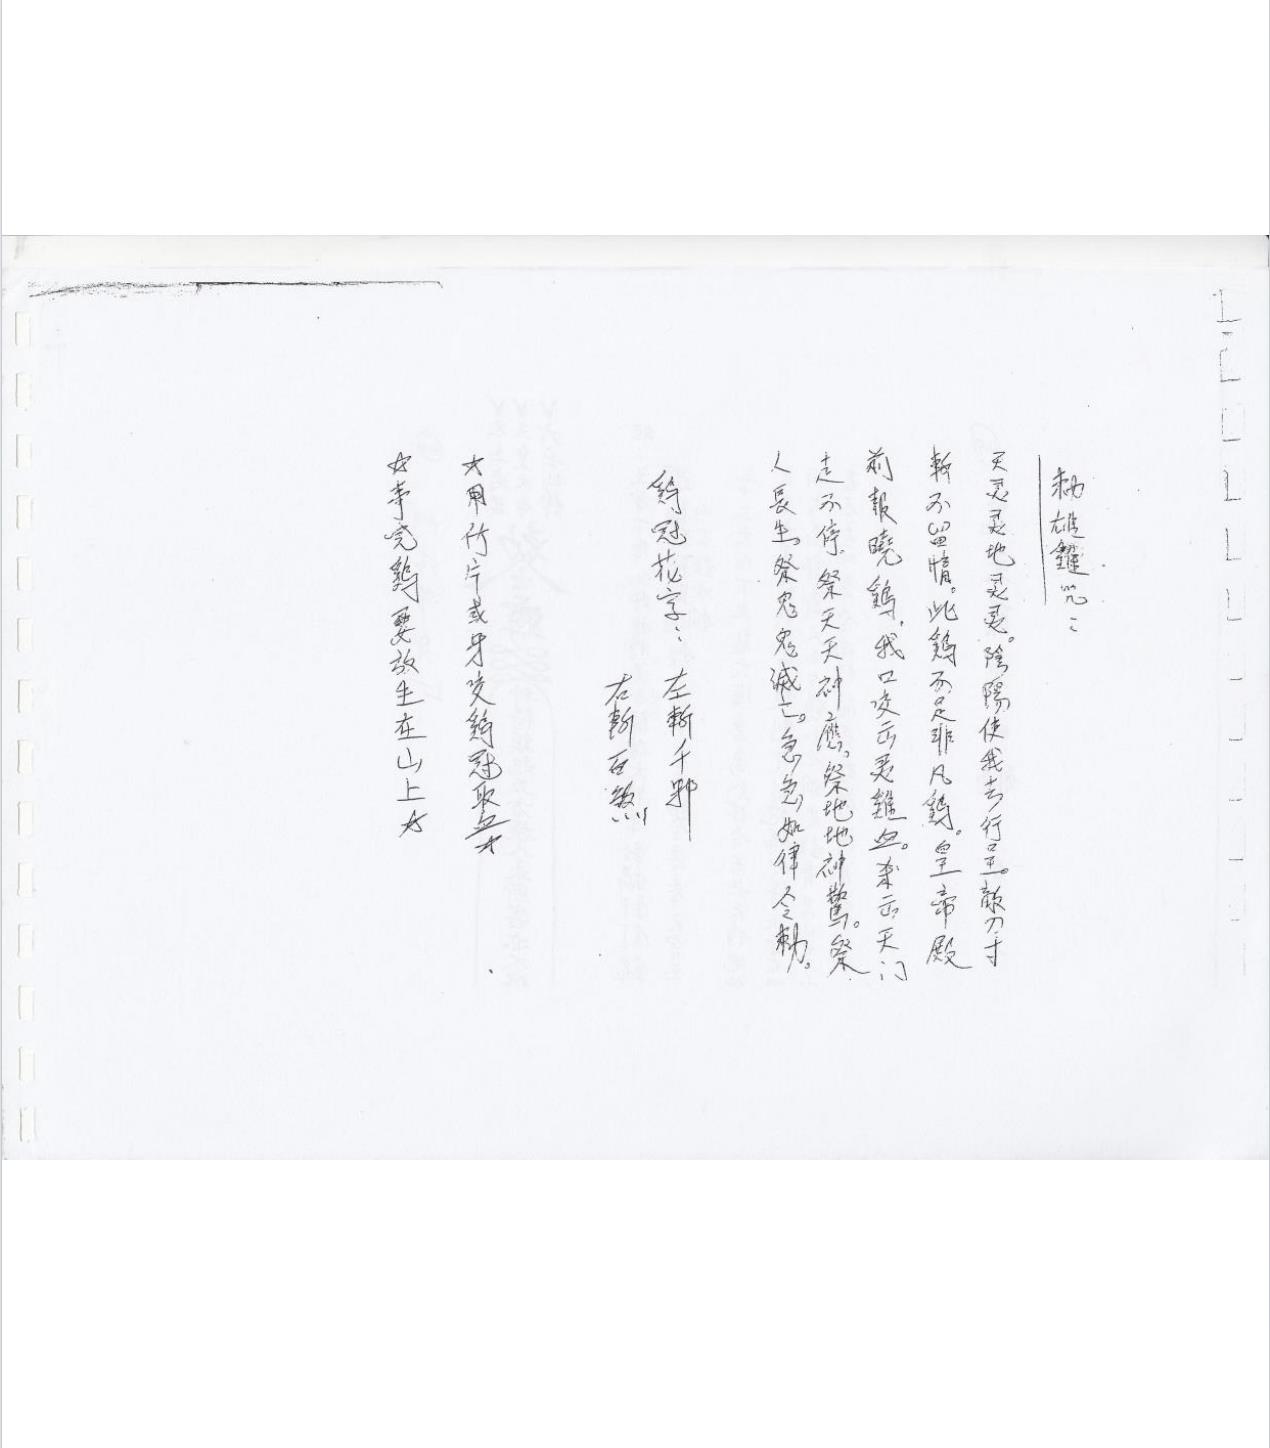 勅雄雞咒：
天灵灵地灵灵。陰陽使我去行呈。敵刀寸
斬不留情。此鷄不是非凡鷄。皇帝殿
前報曉鷄，我口咬出灵雞血。來云天门
走不停，祭天天神應，祭地地神驚。祭
人長生。祭鬼鬼滅亡。急急如律令勅。
鷄冠花字：左斬千邪
右斬百煞
☆用竹片或牙咬鷄冠取血☆
☆事完鷄要放生在山上☆